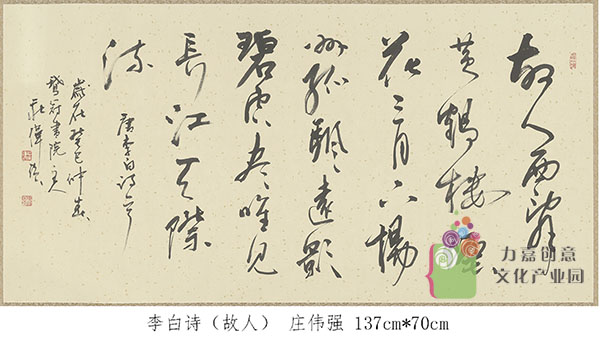 故人西辞
黄鶴樓烟
花三月下揚
州孤帆遠影
碧空尽唯見
長江天際
流
唐李白诗一首
歲在癸巳仲春
書院主人
莊偉强
力嘉创意
文化产业园
李白诗（故人） 庄伟强 137cm*70cm